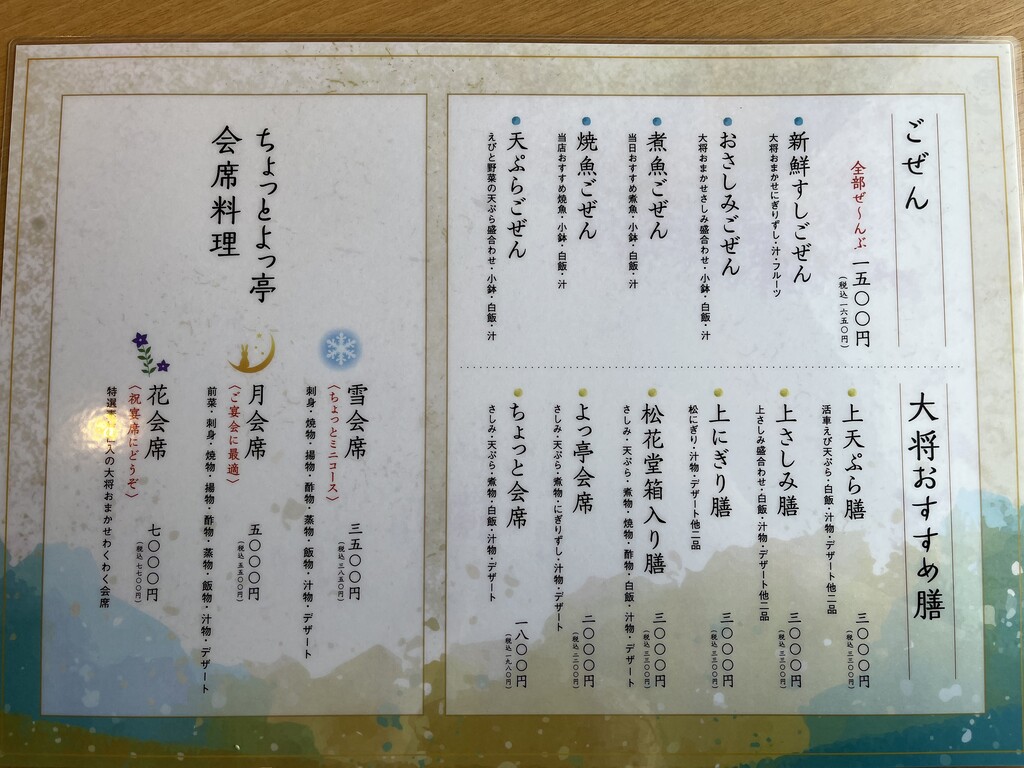 ごぜん
全部ぜ〜んぶ 一五〇〇円
（税込 一六五〇円）
新鮮すしごぜん
大将おまかせにぎりずし・汁・フルーツ
おさしみごぜん
大将おまかせさしみ盛合わせ・小鉢・白飯・汁
煮魚ごぜん
当日おすすめ煮魚・小鉢・白飯・汁
焼魚ごぜん
当店おすすめ焼魚・小鉢・白飯・汁
天ぷらごぜん
えびと野菜の天ぷら盛合わせ・小鉢・白飯・汁
大将おすすめ膳
上天ぷら膳 三〇〇〇円
（税込 三三〇〇円）
活車えび天ぷら・白飯・汁物・デザート他二品
上さしみ膳 三〇〇〇円
（税込 三三〇〇円）
上さしみ盛合わせ・白飯・汁物・デザート他二品
上にぎり膳 三〇〇〇円
（税込 三三〇〇円）
松にぎり・汁物・デザート他二品
松花堂箱入り膳 三〇〇〇円
（税込 三三〇〇円）
さしみ・天ぷら・煮物・焼物・酢物・白飯・汁物・デザート
よっ亭会席 二〇〇〇円
（税込 二二〇〇円）
さしみ・天ぷら・煮物・にぎりずし・汁物・デザート
ちょっと会席 一八〇〇円
（税込 一九八〇円）
さしみ・天ぷら・煮物・白飯・汁物・デザート
ちょっとよっ亭
会席料理
雪会席 三五〇〇円
〈ちょっとミニコース〉
（税込 三八五〇円）
刺身・焼物・揚物・酢物・蒸物・飯物・汁物・デザート
月会席 五〇〇〇円
〈ご宴会に最適〉
（税込 五五〇〇円）
前菜・刺身・焼物・揚物・酢物・蒸物・飯物・汁物・デザート
花会席 七〇〇〇円
〈祝宴席にどうぞ〉
（税込 七七〇〇円）
特選 入の大将おまかせわくわく会席